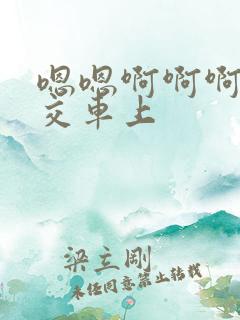 嗯嗯啊啊啊
交车上
梁立刚
未经同意禁止转载